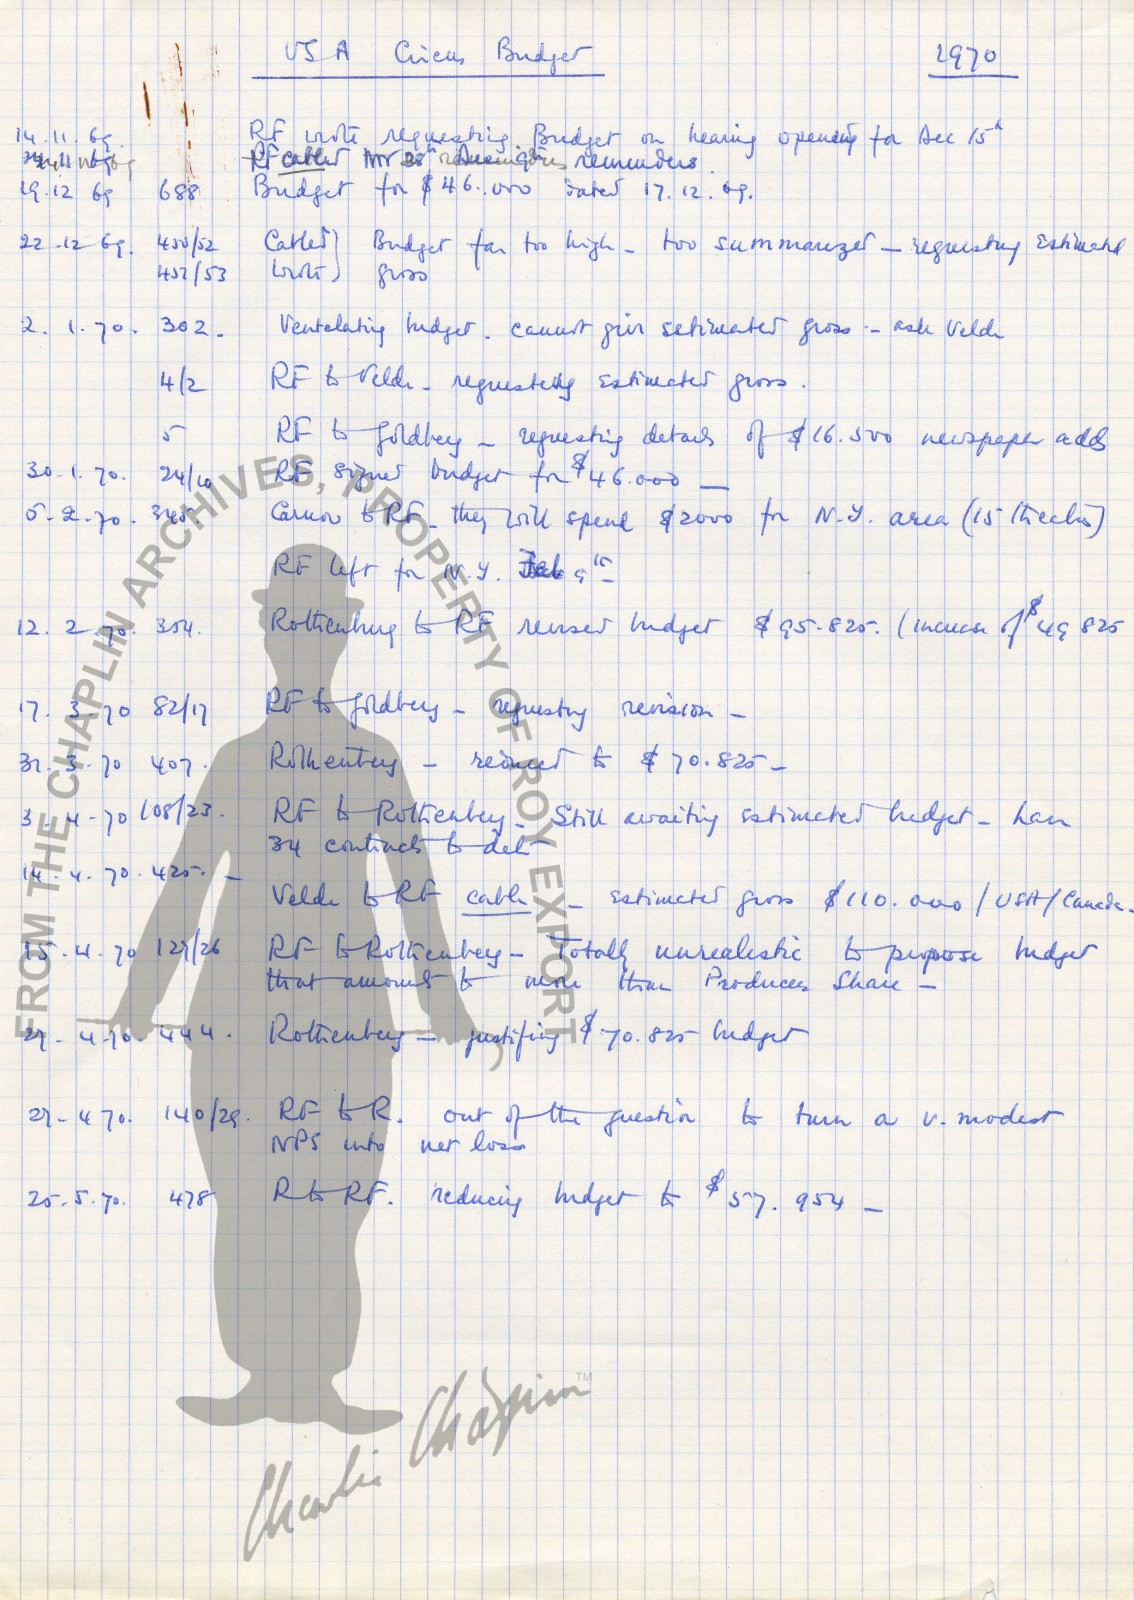 USA Circus Budget 1970
14.11.69. RF wrote requesting Budget on hearing opening for Dec 15th
RF cabled reminders.
19.12 69 688 Budget for $46.000 dated 17.12.69.
22.12 69. 450/52 Cabled) Budget far too high – too summarized – requesting estimated
452/53 wrote) gross
2. 1.70. 302. Ventelating budget. cannot give estimated gross – ask Velde
4/2 RF to Velde – requesting estimated gross.
5 RF to Goldberg – requesting details of $16.500 newspaper adds
30.1.70. 24/10 RF signed budget for $46.000 –
5.2.70. to RF – they will spend $2000 for N.Y. area (15 theatres)
RF left for N.Y. Feb 9th –
12. 2.70. 354. Rothenberg to RF revised budget $95.825. (increase of $49 825
17. 3.70 82/17 RF to Goldberg – requesting revision –
31.3.70 407. Rothenberg – reduced to $70.825 –
3.4.70 108/23. RF to Rothenberg – Still awaiting estimated budget – have
34 contracts to date
14.4.70. 425. –
Velde to RF cable – estimated gross $110.000 / USA/Canada –
15.4.70 127/26 RF to Rothenberg – Totally unrealistic to propose budget
that amounts to more than Producers Share –
27.4.70. 444. Rothenberg – justifying $70.825 budget
29.4 70. 140/29. RF to R. out of the question to turn a v. modest
NPS into net loss
25.5.70. 478 R to RF. reducing budget to $57.954 –
FROM THE CHAPLIN ARCHIVES, PROPERTY OF ROY EXPORT
Charlie Chaplin TM